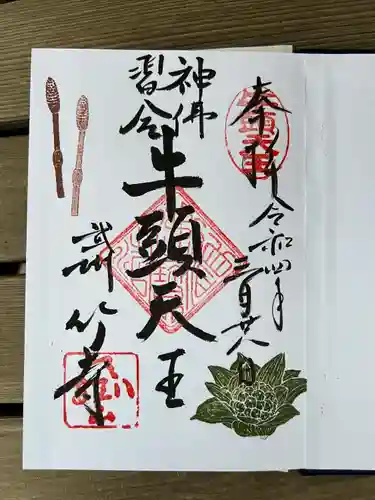 奉拝
令和四年
三月廿八日
神佛
習合
牛頭天王
武州
竹寺